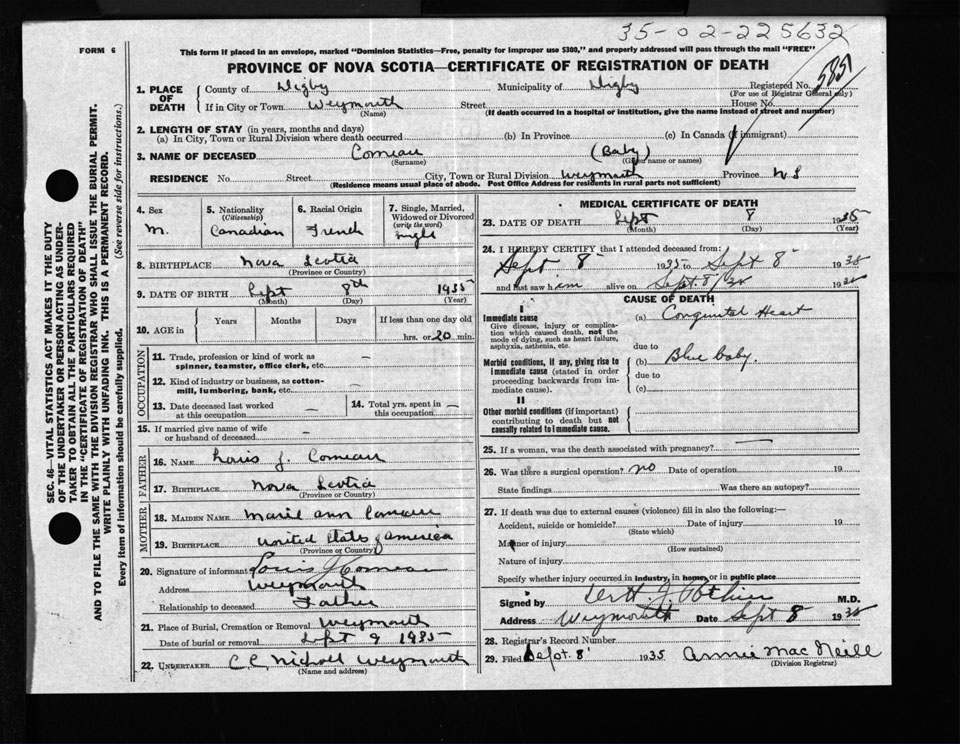 35-02-225632
FORM 6
This form if placed in an envelope, marked "Dominion Statistics—Free, penalty for improper use $300," and properly addressed will pass through the mail "FREE"
PROVINCE OF NOVA SCOTIA—CERTIFICATE OF REGISTRATION OF DEATH
5851
1. PLACE OF DEATH
County of Digby Municipality of Digby Registered No.
(For use of Registrar General only)
If in City or Town Weymouth Street House No.
(Name) (If death occurred in a hospital or institution, give the name instead of street and number)
2. LENGTH OF STAY (in years, months and days)
(a) In City, Town or Rural Division where death occurred (b) In Province (c) In Canada (if immigrant)
3. NAME OF DECEASED Comeau (Baby)
(Surname) (Given name or names)
RESIDENCE No. Street City, Town or Rural Division Weymouth Province N S
(Residence means usual place of abode. Post Office Address for residents in rural parts not sufficient)
SEC. 46—VITAL STATISTICS ACT MAKES IT THE DUTY
OF THE UNDERTAKER OR PERSON ACTING AS UNDER-
TAKER TO OBTAIN ALL THE PARTICULARS REQUIRED
IN THE "CERTIFICATE OF REGISTRATION OF DEATH"
AND TO FILE THE SAME WITH THE DIVISION REGISTRAR WHO SHALL ISSUE THE BURIAL PERMIT.
WRITE PLAINLY WITH UNFADING INK. THIS IS A PERMANENT RECORD.
Every item of information should be carefully supplied. (See reverse side for instructions.)
4. Sex
M.
5. Nationality
(Citizenship)
Canadian
6. Racial Origin
French
7. Single, Married,
Widowed or Divorced
(write the word)
single
8. BIRTHPLACE Nova Scotia
(Province or Country)
9. DATE OF BIRTH Sept 8th 1935
(Month) (Day) (Year)
10. AGE in
Years Months Days If less than one day old
hrs. or 20 min.
OCCUPATION
11. Trade, profession or kind of work as
spinner, teamster, office clerk, etc. —
12. Kind of industry or business, as cotton-
mill, lumbering, bank, etc. —
13. Date deceased last worked
at this occupation —
14. Total yrs. spent in
this occupation —
15. If married give name of wife
or husband of deceased —
FATHER
16. NAME Louis J. Comeau
17. BIRTHPLACE Nova Scotia
(Province or Country)
MOTHER
18. MAIDEN NAME Marie Ann Comeau
19. BIRTHPLACE United States of America
(Province or Country)
20. Signature of informant Louis J Comeau
Address Weymouth
Relationship to deceased Father
21. Place of Burial, Cremation or Removal Weymouth
Date of burial or removal Sept 9 1935
22. UNDERTAKER C C Nicholl Weymouth
(Name and address)
MEDICAL CERTIFICATE OF DEATH
23. DATE OF DEATH Sept 8 1935
(Month) (Day) (Year)
24. I HEREBY CERTIFY that I attended deceased from:
Sept 8 1935 to Sept 8 1935
and last saw him alive on Sept. 8/35 19
CAUSE OF DEATH
I
Immediate cause
Give disease, injury or complica-
tion which caused death, not the
mode of dying, such as heart failure,
asphyxia, asthenia, etc.
(a) Congenital Heart
due to
Morbid conditions, if any, giving rise to
immediate cause (stated in order
proceeding backwards from im-
mediate cause).
(b) Blue baby.
due to
(c)
II
Other morbid conditions (if important)
contributing to death but not
causally related to immediate cause.
25. If a woman, was the death associated with pregnancy? —
26. Was there a surgical operation? no Date of operation 19
State findings Was there an autopsy?
27. If death was due to external causes (violence) fill in also the following:—
Accident, suicide or homicide? Date of injury 19
(State which)
Manner of injury
(How sustained)
Nature of injury
Specify whether injury occurred in industry, in home, or in public place
Signed by J. Pothier M.D.
Address Weymouth Date Sept 8 1935
28. Registrar's Record Number
29. Filed Sept. 8 1935 Annie MacNeill
(Division Registrar)